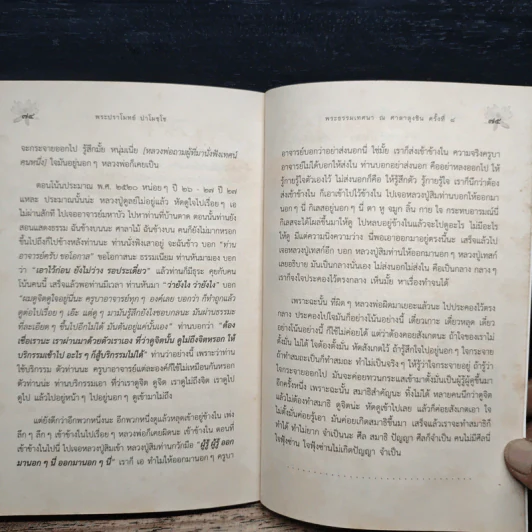 ๗๔
พระปราโมทย์ ปาโมชฺโช
จะกระจายออกไป รู้สึกมั้ย หนุ่มเนี่ย [หลวงพ่อถามผู้ที่มานั่งฟังเทศน์
คนหนึ่ง] ใจมันอยู่นอกๆ หลวงพ่อก็เคยเป็น
ตอนโน้นประมาณ พ.ศ. ๒๕๒๐ หน่อยๆ ปี ๒๖ - ๒๗ ปี ๒๗
แหละ ประมาณนั้นน่ะ หลวงปู่ดูลย์ไม่อยู่แล้ว หัดดูใจไปเรื่อยๆ เอ
ไม่ผ่านสักที ไปเจออาจารย์มหาบัว ไปหาท่านที่บ้านตาด ตอนนั้นท่านยัง
สอนแสดงธรรม ฉันข้างบนนะ ศาลาไม้ ฉันข้างบน คนก็ยังไม่มากหรอก
ขึ้นไปถึงก็ไปข้างหลังท่านนะ ท่านนั่งพิงเสาอยู่ จะฉันข้าว บอก "ท่าน
อาจารย์ครับ ขอโอกาส" ขอโอกาสนะ ธรรมเนียม ท่านหันมามอง บอก
ว่า "เอาไว้ก่อน ยังไม่ว่าง รอประเดี๋ยว" แล้วท่านก็มีธุระ คุยกับคน
โน้นคนนี้ เสร็จแล้วพอท่านมีเวลา ท่านหันมา "ว่ายังไง ว่ายังไง" บอก
"ผมดูจิตดูใจอยู่นี่นะ ครูบาอาจารย์ทุกๆ องค์เลย บอกว่า ก็ทำถูกแล้ว
ดูต่อไปเรื่อยๆ เอ๊ะ แต่ดู ๆ มามันรู้สึกยังไงชอบกลนะ มันผ่านธรรมะ
ทีละเอียดๆ ขึ้นไปอีกไม่ได้ มันตันอยู่แค่นั้นเอง" ท่านบอกว่า "ต้อง
เชื่อเรานะ เราผ่านมาด้วยตัวเราเอง ที่ว่าดูจิต ดูไม่ถึงจิตหรอก ให้
บริกรรมเข้าไป อะไรๆ ก็สู้บริกรรมไม่ได้" ท่านว่าอย่างนี้ เพราะว่าท่าน
ใช้บริกรรม ตัวท่านนะ ครูบาอาจารย์แต่ละองค์ก็ใช้ไม่เหมือนกันหรอก
ตัวท่านน่ะ ท่านบริกรรมเอา ที่ว่าเราดูจิต ดูไปเรื่อย ดูไม่ถึงจิต เราดูไป
ดูไป แล้วไปอยู่หน้าๆ ไปอยู่นอกๆ ดูเข้ามาไม่ถึง
แต่ยังดีกว่าอีกพวกหนึ่งนะ อีกพวกหนึ่งดูแล้วหลุดเข้าอยู่ข้างใน เพ่ง
ลึก ๆ เข้าข้างในไปเรื่อยๆ หลวงพ่อก็เคยผิดนะ เข้าข้างใน ตอนที่
เข้าข้างในไปนี้ ไปเจอหลวงปู่สิมเข้า หลวงปู่สิมท่านกวักมือ "ผู้รู้ ผู้รู้ ออก
มานอกๆ นี้ ออกมานอกๆ นี้" เราก็ เอ ทำไมให้ออกมานอกๆ ครูบา
พระธรรมเทศนา ณ ศาลาลุงชิน ครั้งที่ ๔
๗๕
อาจารย์บอกว่าอย่าส่งออกนอกนี่ ใช่มั้ย เราก็ส่งเข้าข้างใน ความจริงครูบา
อาจารย์ไม่ได้บอกให้ส่งใน ท่านบอกอย่าส่งนอก คืออย่าหลงออกไป ให้
รู้กายรู้ใจตัวเองไว้ ไม่ส่งนอกก็คือ ให้รู้สึกตัว รู้กายรู้ใจ เราก็นึกว่าต้อง
ส่งเข้าข้างใน ก็เอาเข้าไปไว้ข้างใน ไปเจอหลวงปู่สิมท่านบอกให้ออกมา
นอกๆ นี้ กิเลสอยู่นอกๆ นี้ ตา หู จมูก ลิ้น กาย ใจ กระทบอารมณ์นี่
กิเลสจะได้โผล่ขึ้นมาให้ดู ไปหลบอยู่ข้างในแล้วจะไปดูอะไร ไม่มีอะไร
ให้ดู มีแต่ความนิ่งความว่าง นี่พอเอาออกมาอยู่ตรงนี้นะ เสร็จแล้วไป
เจอหลวงปู่เทสก์อีก บอก หลวงปู่สิมท่านให้ออกมานอกๆ หลวงปู่เทสก์
เลยอธิบาย มันเป็นกลางนั่นเอง ไม่ส่งนอกไม่ส่งใน คือเป็นกลาง กลางๆ
เราก็จงใจประคองไว้ตรงกลาง เห็นมั้ย หาเรื่องทำจนได้
เพราะฉะนั้น ที่ผิดๆ หลวงพ่อผิดมาเยอะแล้วนะ ไปประคองไว้ตรง
กลาง ประคองไปใจมันก็อย่างโน้นอย่างนี้ เดี๋ยวเกาะ เดี๋ยวหลุด เดี๋ยว
อย่างโน้นอย่างนี้ ก็ใช้ไม่ค่อยได้ แต่ว่าต้องคอยสังเกตนะ ถ้าใจของเราไม่
ตั้งมั่นพอ ใช้ไม่ได้จริง ต้องหัดสังเกตไว้ ถ้ารู้สึกใจไปอยู่นอกๆ ใจกระจาย
ถ้าทำสมถะเป็นก็ทำสมถะ ทำไม่เป็นจริงๆ ให้รู้ว่าใจกระจายอยู่ ถ้ารู้ว่า
ใจกระจายออกไป มันจะค่อยทวนกระแสเข้ามาตั้งมั่นเป็นผู้รู้ผู้ดูขึ้นมา
อีกครั้งหนึ่ง เพราะฉะนั้น สมาธิสำคัญนะ ทิ้งไม่ได้ หลายคนนึกว่าดูจิต
แล้วไม่ต้องทำสมาธิ ดูจิตน่ะ หัดดูเข้าไปเลย แล้วก็ค่อยสังเกตเอา ใจ
ไม่ตั้งมั่นค่อยรู้เอา มันค่อยเกิดสมาธิขึ้นมา เสร็จแล้วเราจะทำสมาธิก็
ทำได้ ทำไม่ยาก จำเป็นนะ ศีล สมาธิ ปัญญา ศีลก็จำเป็น คนไม่มีศีลนี่
ใจฟุ้งซ่าน ใจฟุ้งซ่านไม่เกิดปัญญา จำเป็น